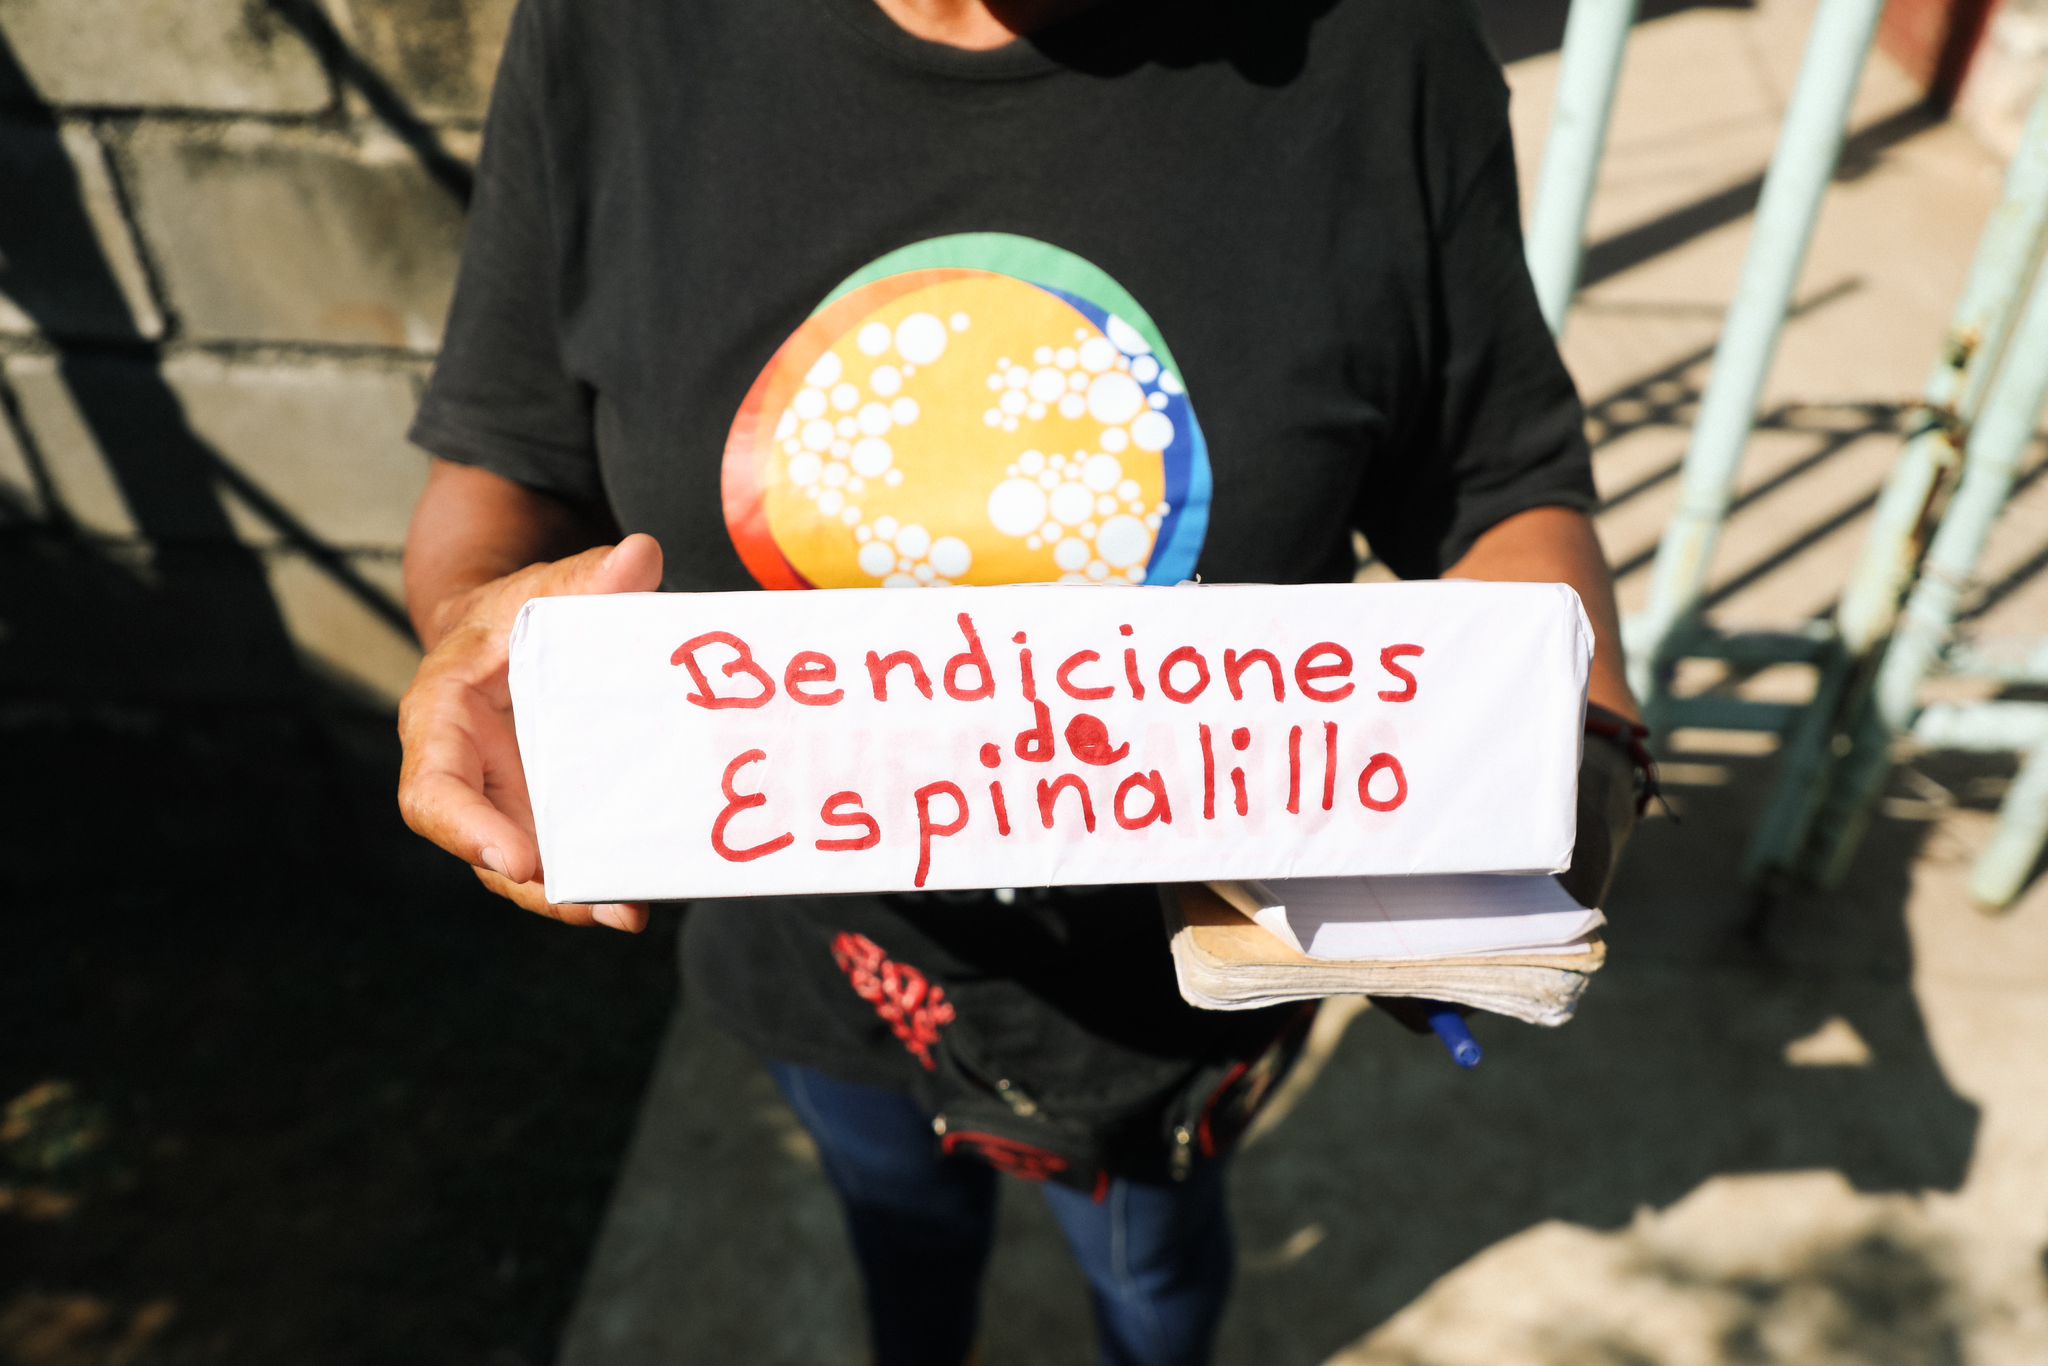 Bendiciones
de
Espinalillo